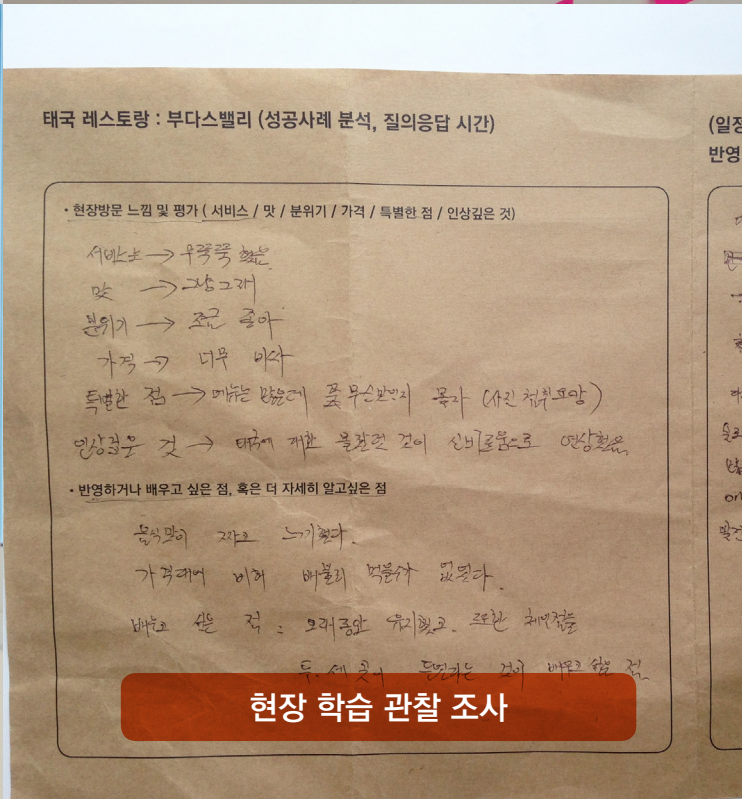 태국 레스토랑 : 부다스밸리 (성공사례 분석, 질의응답 시간)
(일정
반영
• 현장방문 느낌 및 평가 ( 서비스 / 맛 / 분위기 / 가격 / 특별한 점 / 인상깊은 것)
서비스 → 무뚝뚝 했음
맛 → 그냥 그래
분위기 → 조금 좋아
가격 → 너무 비싸
특별한 점 → 메뉴는 많은데 무슨맛인지 모르 (사진 첨취요망)
인상깊은 것 → 태국에 대한 것이 신비로움으로 연상했음
• 반영하거나 배우고 싶은 점, 혹은 더 자세히 알고싶은 점
음식맛이 짜고 느끼했다.
가격대에 비해 배불리 먹을수가 없었다.
배우고 싶은 점 : 오래동안 유지했고. 또한 체인점을
두, 세 곳이 것이 배우고 싶은 점.
현장 학습 관찰 조사